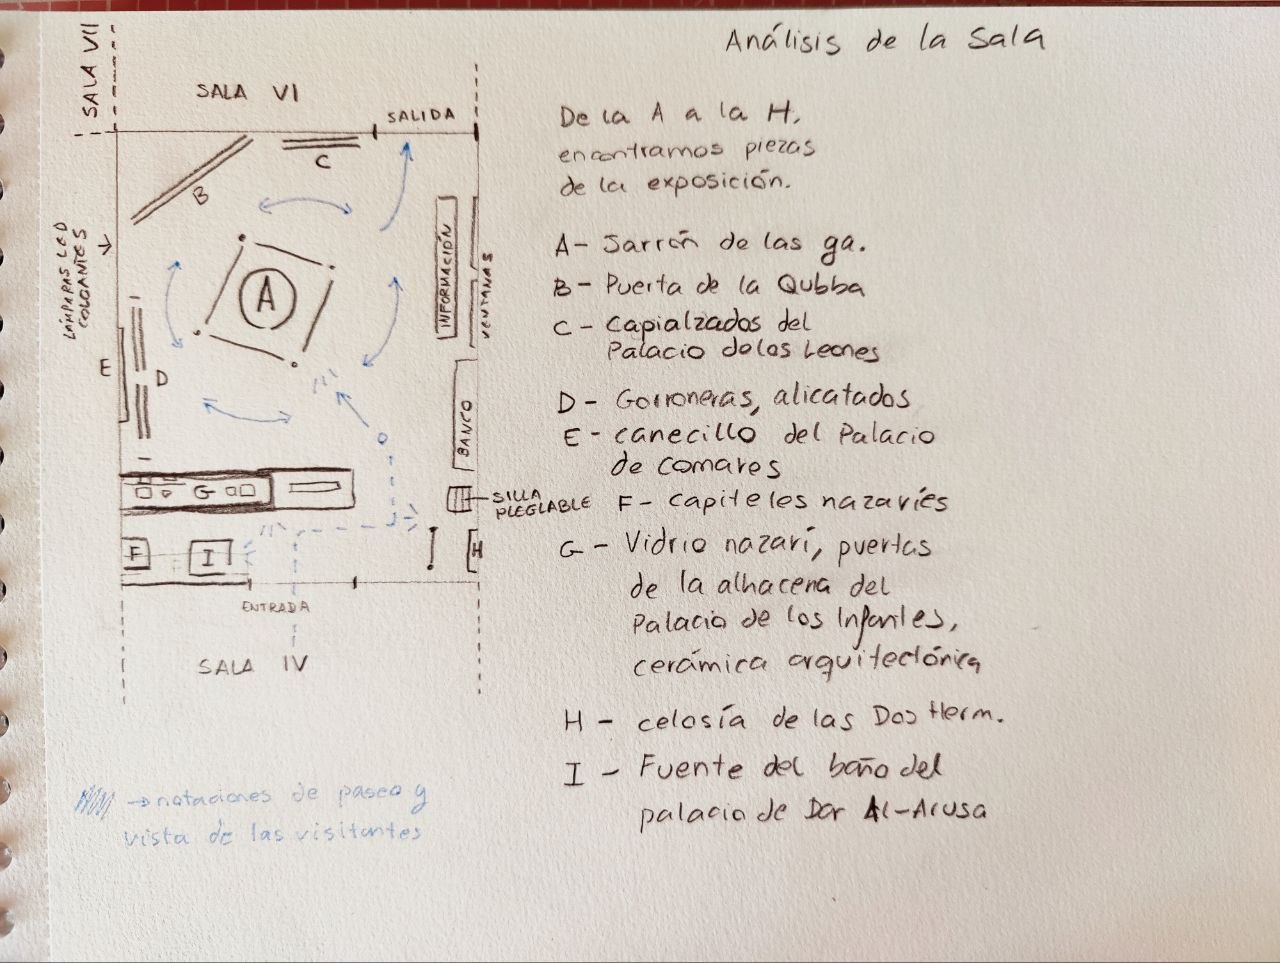 Análisis de la Sala
SALA VII
SALA VI
SALIDA
C
B
LÁMPARAS LED
COLGANTES
A
INFORMACIÓN
VENTANAS
E
D
BANCO
G
SILLA
PLEGLABLE
F
I
H
ENTRADA
SALA IV
→ notaciones de paseo y
vista de las visitantes
De la A a la H,
encontramos piezas
de la exposición.
A - Jarrón de las ga.
B - Puerta de la Qubba
C - Capialzados del
Palacio de los Leones
D - Gorroneras, alicatados
E - canecillo del Palacio
de Comares
F - capiteles nazaríes
G - Vidrio nazarí, puertas
de la alhacena del
Palacio de los Infantes,
cerámica arquitectónica
H - celosía de las Dos Herm.
I - Fuente del baño del
palacio de Dar Al-Arusa